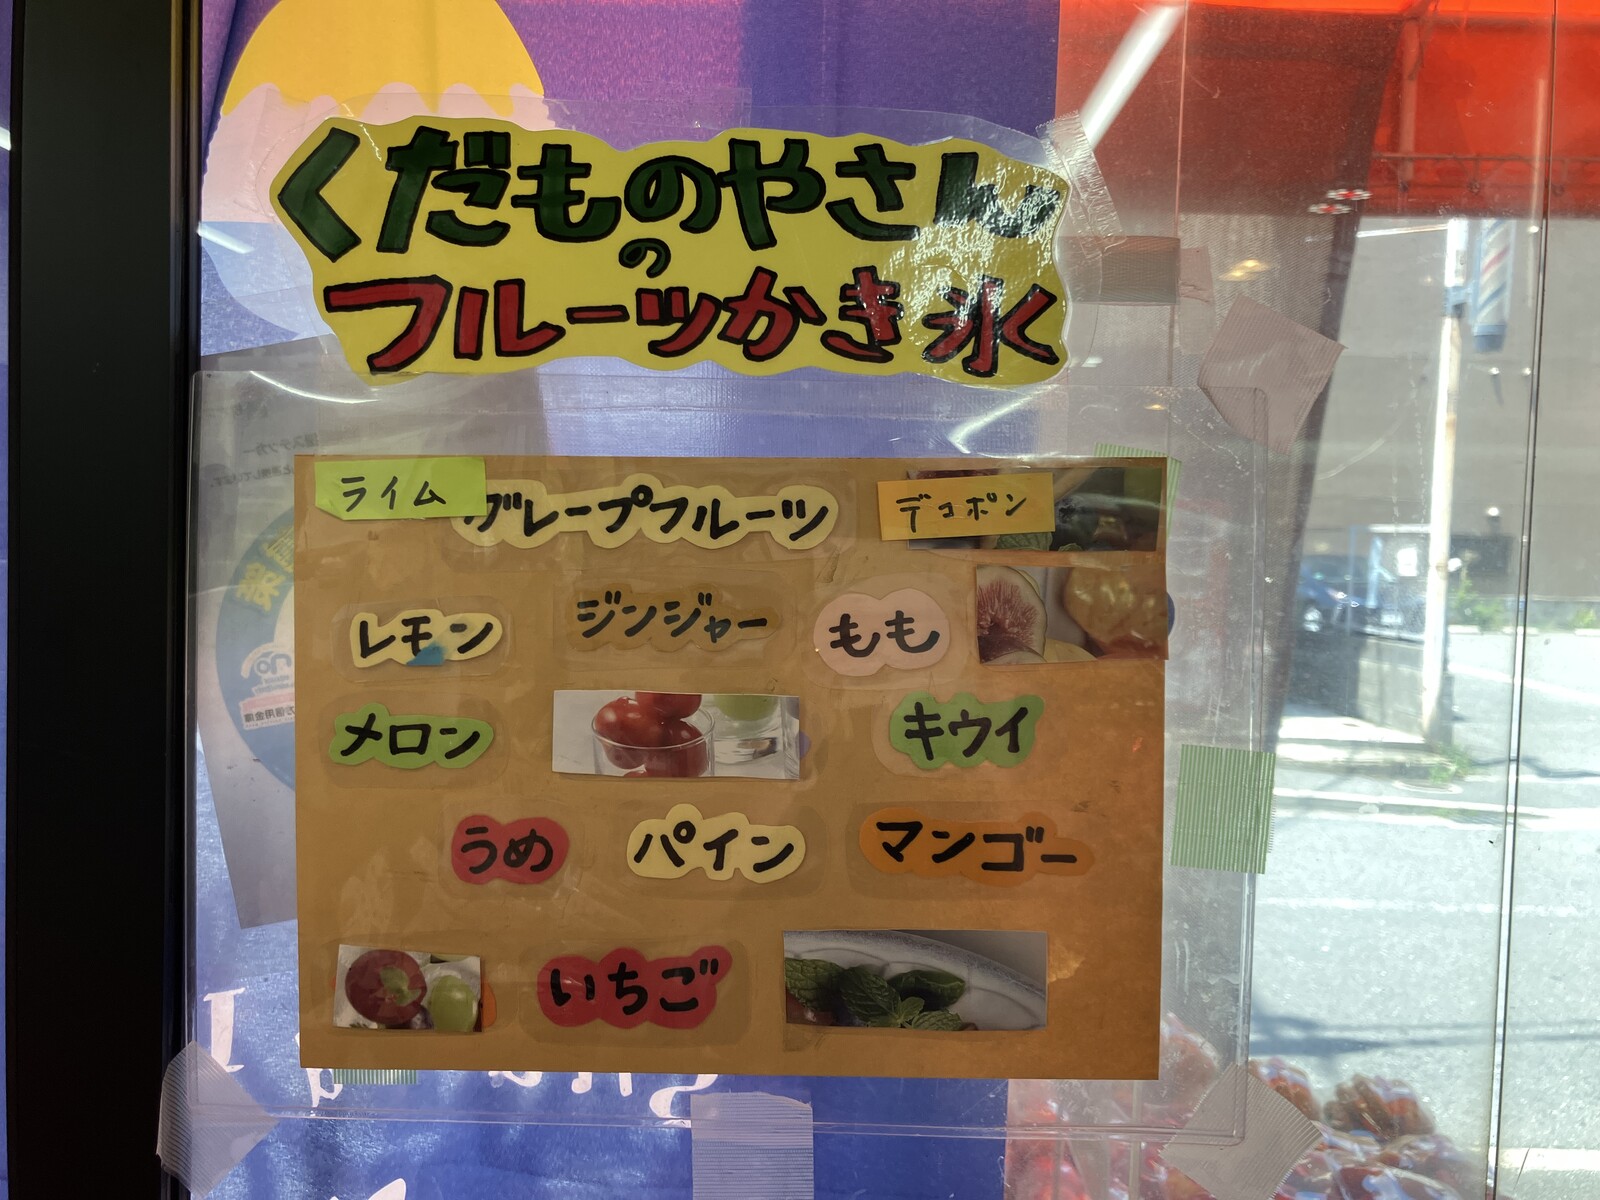 くだものやさん
の
フルーツかき氷
ライム
グレープフルーツ
デコポン
レモン
ジンジャー
もも
メロン
キウイ
うめ
パイン
マンゴー
いちご